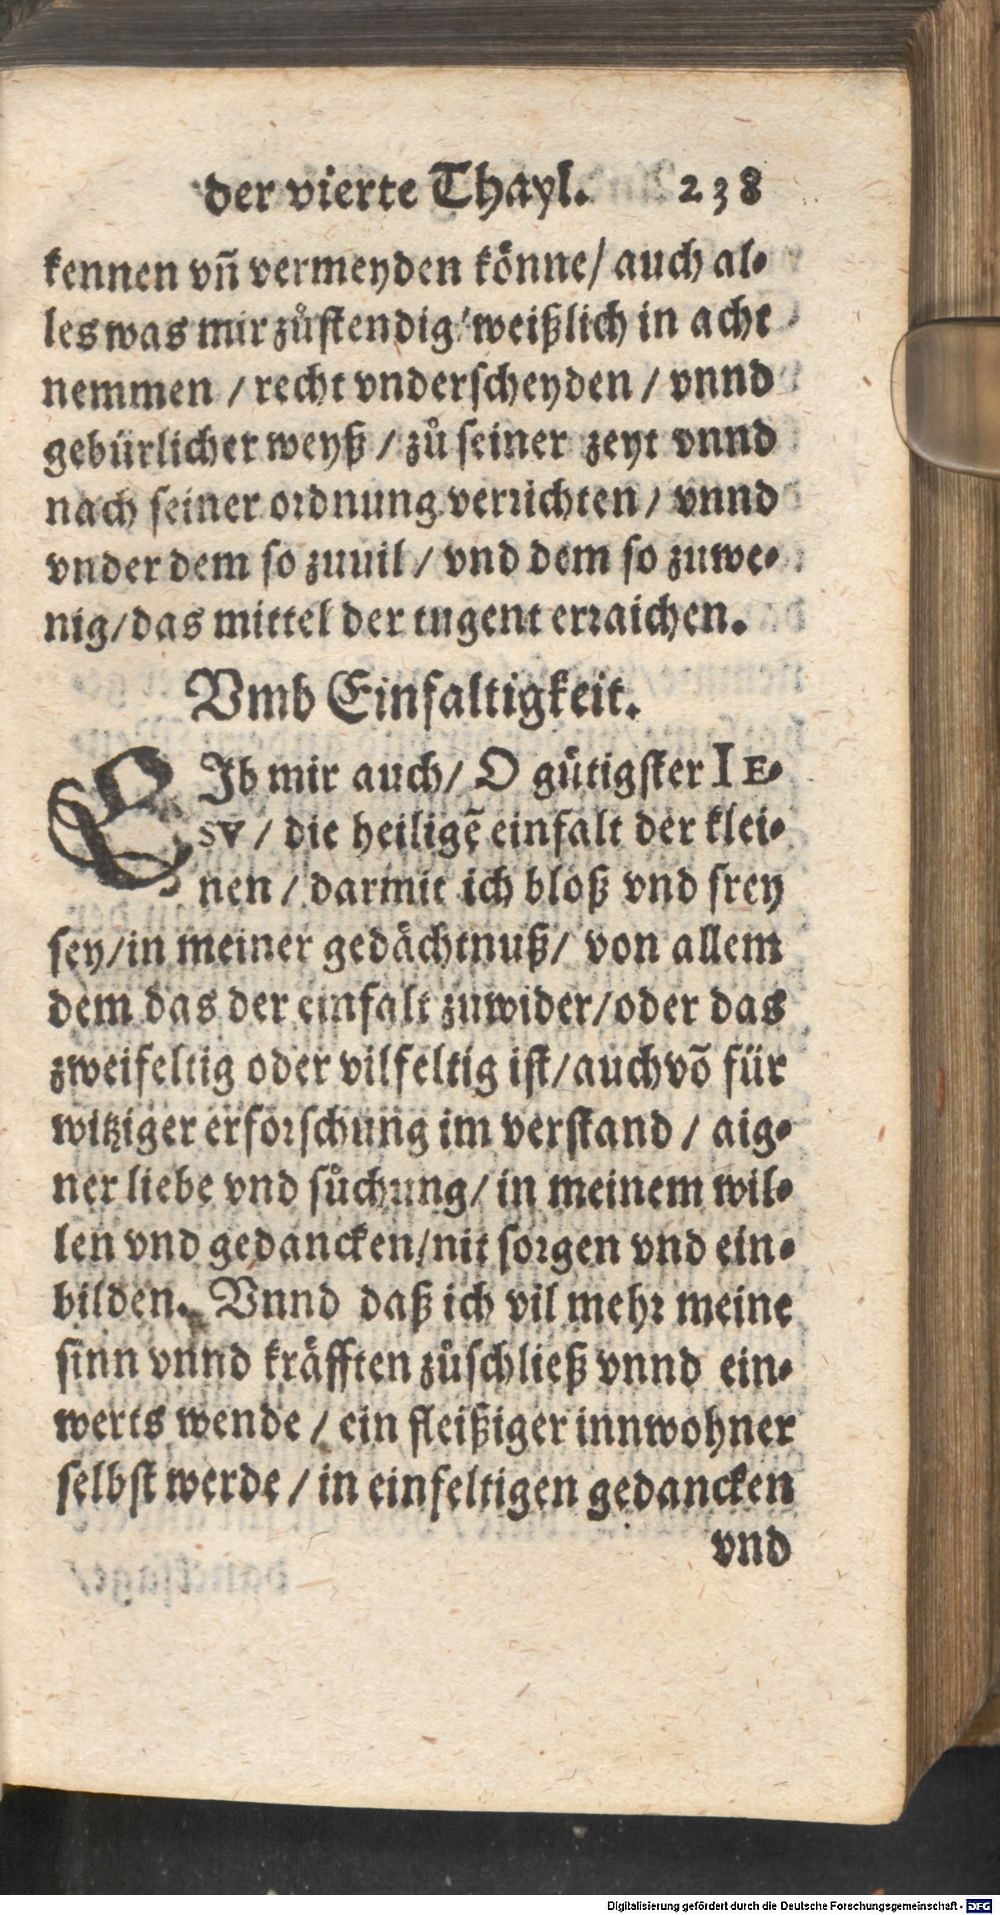 der vierte Thayl. 238
kennen vñ vermeyden könne/ auch al-
les was mir zůstendig/ weißlich in acht
nemmen / recht vnderscheyden / vnnd
gebürlicher weyß / zů seiner zeyt vnnd
nach seiner ordnung verrichten / vnnd
vnder dem so zuuil / vnd dem so zuwe-
nig/ das mittel der tugent erraichen.
Vmb Einfaltigkeit.
GIb mir auch/ O gütigster IE-
SV / die heiligẽ einfalt der klei-
nen / darmit ich bloß vnd frey
sey/in meiner gedächtnuß/ von allem
dem das der einfalt zuwider/oder das
zweifeltig oder vilfeltig ist/auch võ für
witziger erforschung im verstand / aig-
ner liebe vnd sůchung/ in meinem wil-
len vnd gedancken/nit sorgen vnd ein-
bilden. Vnnd daß ich vil mehr meine
sinn vnnd kräfften zůschließ vnnd ein-
werts wende / ein fleißiger innwohner
selbst werde / in einfeltigen gedancken
vnd
Digitalisierung gefördert durch die Deutsche Forschungsgemeinschaft - DFG